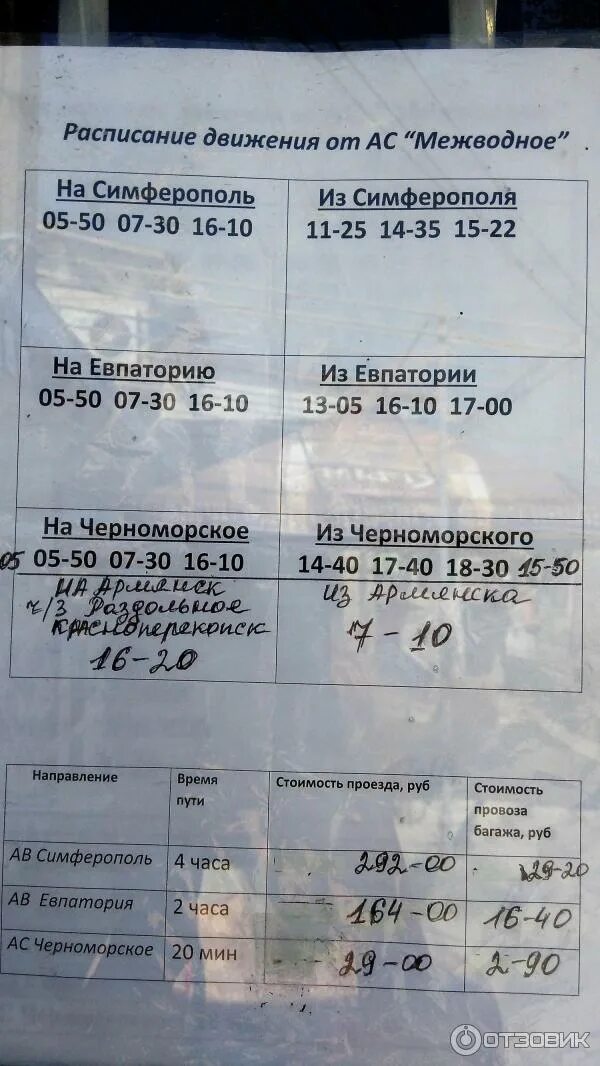 Расписание движения от АС “Межводное”
На Симферополь
05-50 07-30 16-10
Из Симферополя
11-25 14-35 15-22
На Евпаторию
05-50 07-30 16-10
Из Евпатории
13-05 16-10 17-00
На Черноморское
05 05-50 07-30 16-10
Из Черноморского
14-40 17-40 18-30 15-50
на Армянск
ч/з Раздольное
Красноперекопск
16-20
из Армянска
7-10
Направление
Время пути
Стоимость проезда, руб
Стоимость провоза багажа, руб
АВ Симферополь
4 часа
292-00
29-20
АВ Евпатория
2 часа
164-00
16-40
АС Черноморское
20 мин
29-00
2-90
ОТЗОВИК